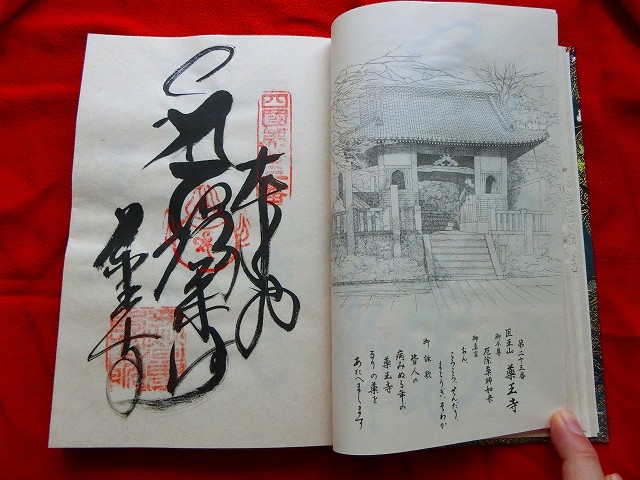 奉納
薬王寺
第二十三番
医王山 薬王寺
御本尊
厄除薬師如来
御真言
おん
ころころ せんだり
まとうぎ そわか
御詠歌
皆人の
病みぬる年の
薬王寺
るりの薬を
あたへまします